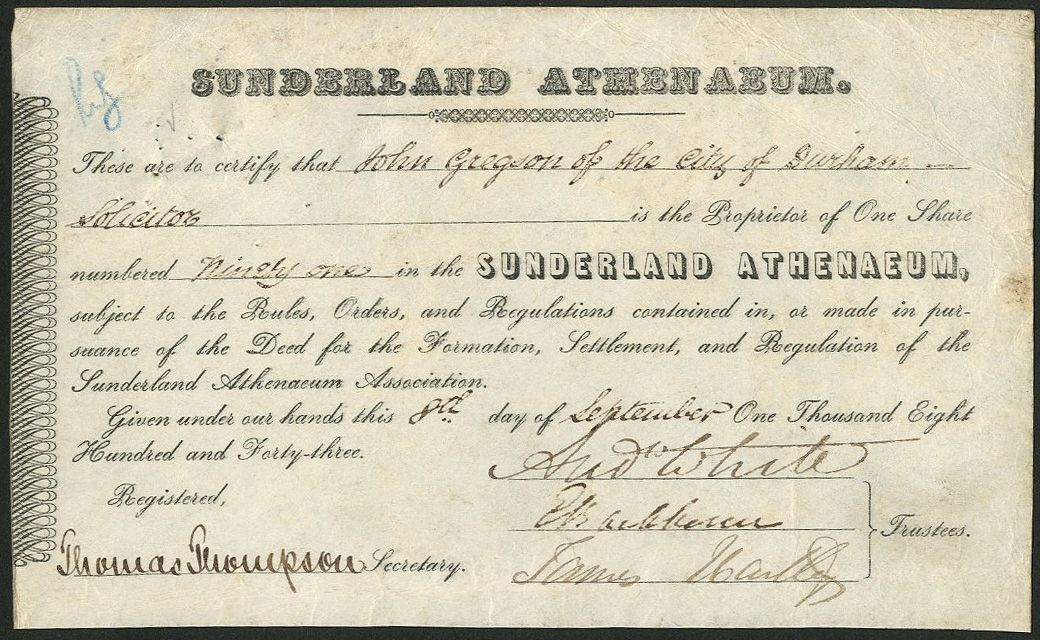 SUNDERLAND ATHENAEUM.
These are to certify that John Gregson of the City of Durham
Solicitor is the Proprietor of One Share
numbered Ninety one in the SUNDERLAND ATHENAEUM,
subject to the Rules, Orders, and Regulations contained in, or made in pur-
suance of the Deed for the Formation, Settlement, and Regulation of the
Sunderland Athenaeum Association.
Given under our hands this 8th day of September One Thousand Eight
Hundred and Forty-three.
Andw White
Registered,
Trustees.
Thomas Thompson Secretary.
James Hartley